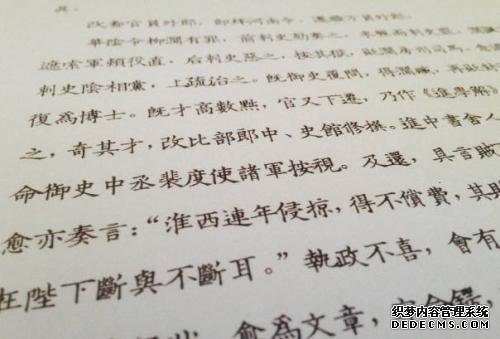 改都官員外郎，即拜河南令，遷職方員外郎。
華陰令柳澗有罪，前刺史劾奏之，未報而刺史罷，澗
遮索軍頓役直，后刺史惡之，按其獄，貶澗房州司馬。
刺史陰相黨，上疏治之。既御史覆問，得澗贓，再貶
復為博士。既才高數黜，官又下遷，乃作《進學解》
之，奇其才，改比部郎中、史館修撰。進中書舍人
命御史中丞裴度使諸軍按視。及還，具言賊
愈亦奏言：“淮西連年侵掠，得不償費，其
在陛下斷與不斷耳。”執政不喜，會有
愈為文章，
织梦内容管理系统
DEDECMS.COM